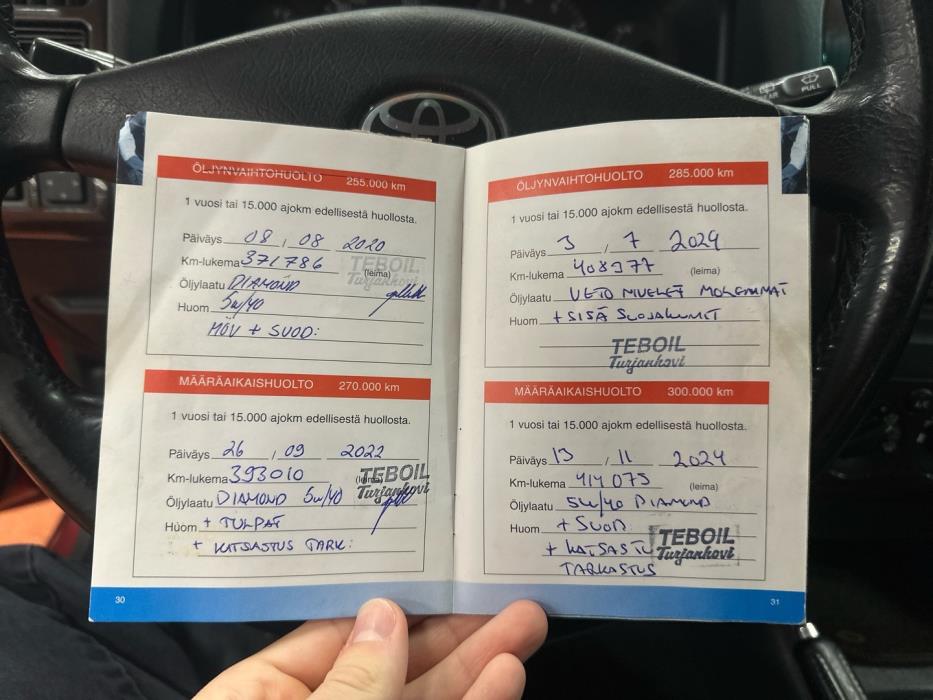 ÖLJYNVAIHTOHUOLTO 255.000 km
1 vuosi tai 15.000 ajokm edellisestä huollosta.
Päiväys 08 / 08 2020
Km-lukema 371786 (leima)
TEBOIL
Turjankovi
Öljylaatu DIAMOND
Huom 5W/40
MÖV + SUOD:
MÄÄRÄAIKAISHUOLTO 270.000 km
1 vuosi tai 15.000 ajokm edellisestä huollosta.
Päiväys 26 / 09 2022
Km-lukema 393010 (leima)
TEBOIL
Turjankovi
Öljylaatu DIAMOND 5W/40
Huom + TULPAT
+ KATSASTUS TARK:
30
ÖLJYNVAIHTOHUOLTO 285.000 km
1 vuosi tai 15.000 ajokm edellisestä huollosta.
Päiväys 3 / 7 2024
Km-lukema 408977 (leima)
Öljylaatu VETO NIVELET MOLEMMAT
Huom + SISÄ SUOJAKUMIT
TEBOIL
Turjankovi
MÄÄRÄAIKAISHUOLTO 300.000 km
1 vuosi tai 15.000 ajokm edellisestä huollosta.
Päiväys 13 / 11 2024
Km-lukema 414075 (leima)
Öljylaatu 5W/40 DIAMOND
Huom + SUOD
+ KATSASTU
TARKASTUS
TEBOIL
Turjankovi
31
PULL